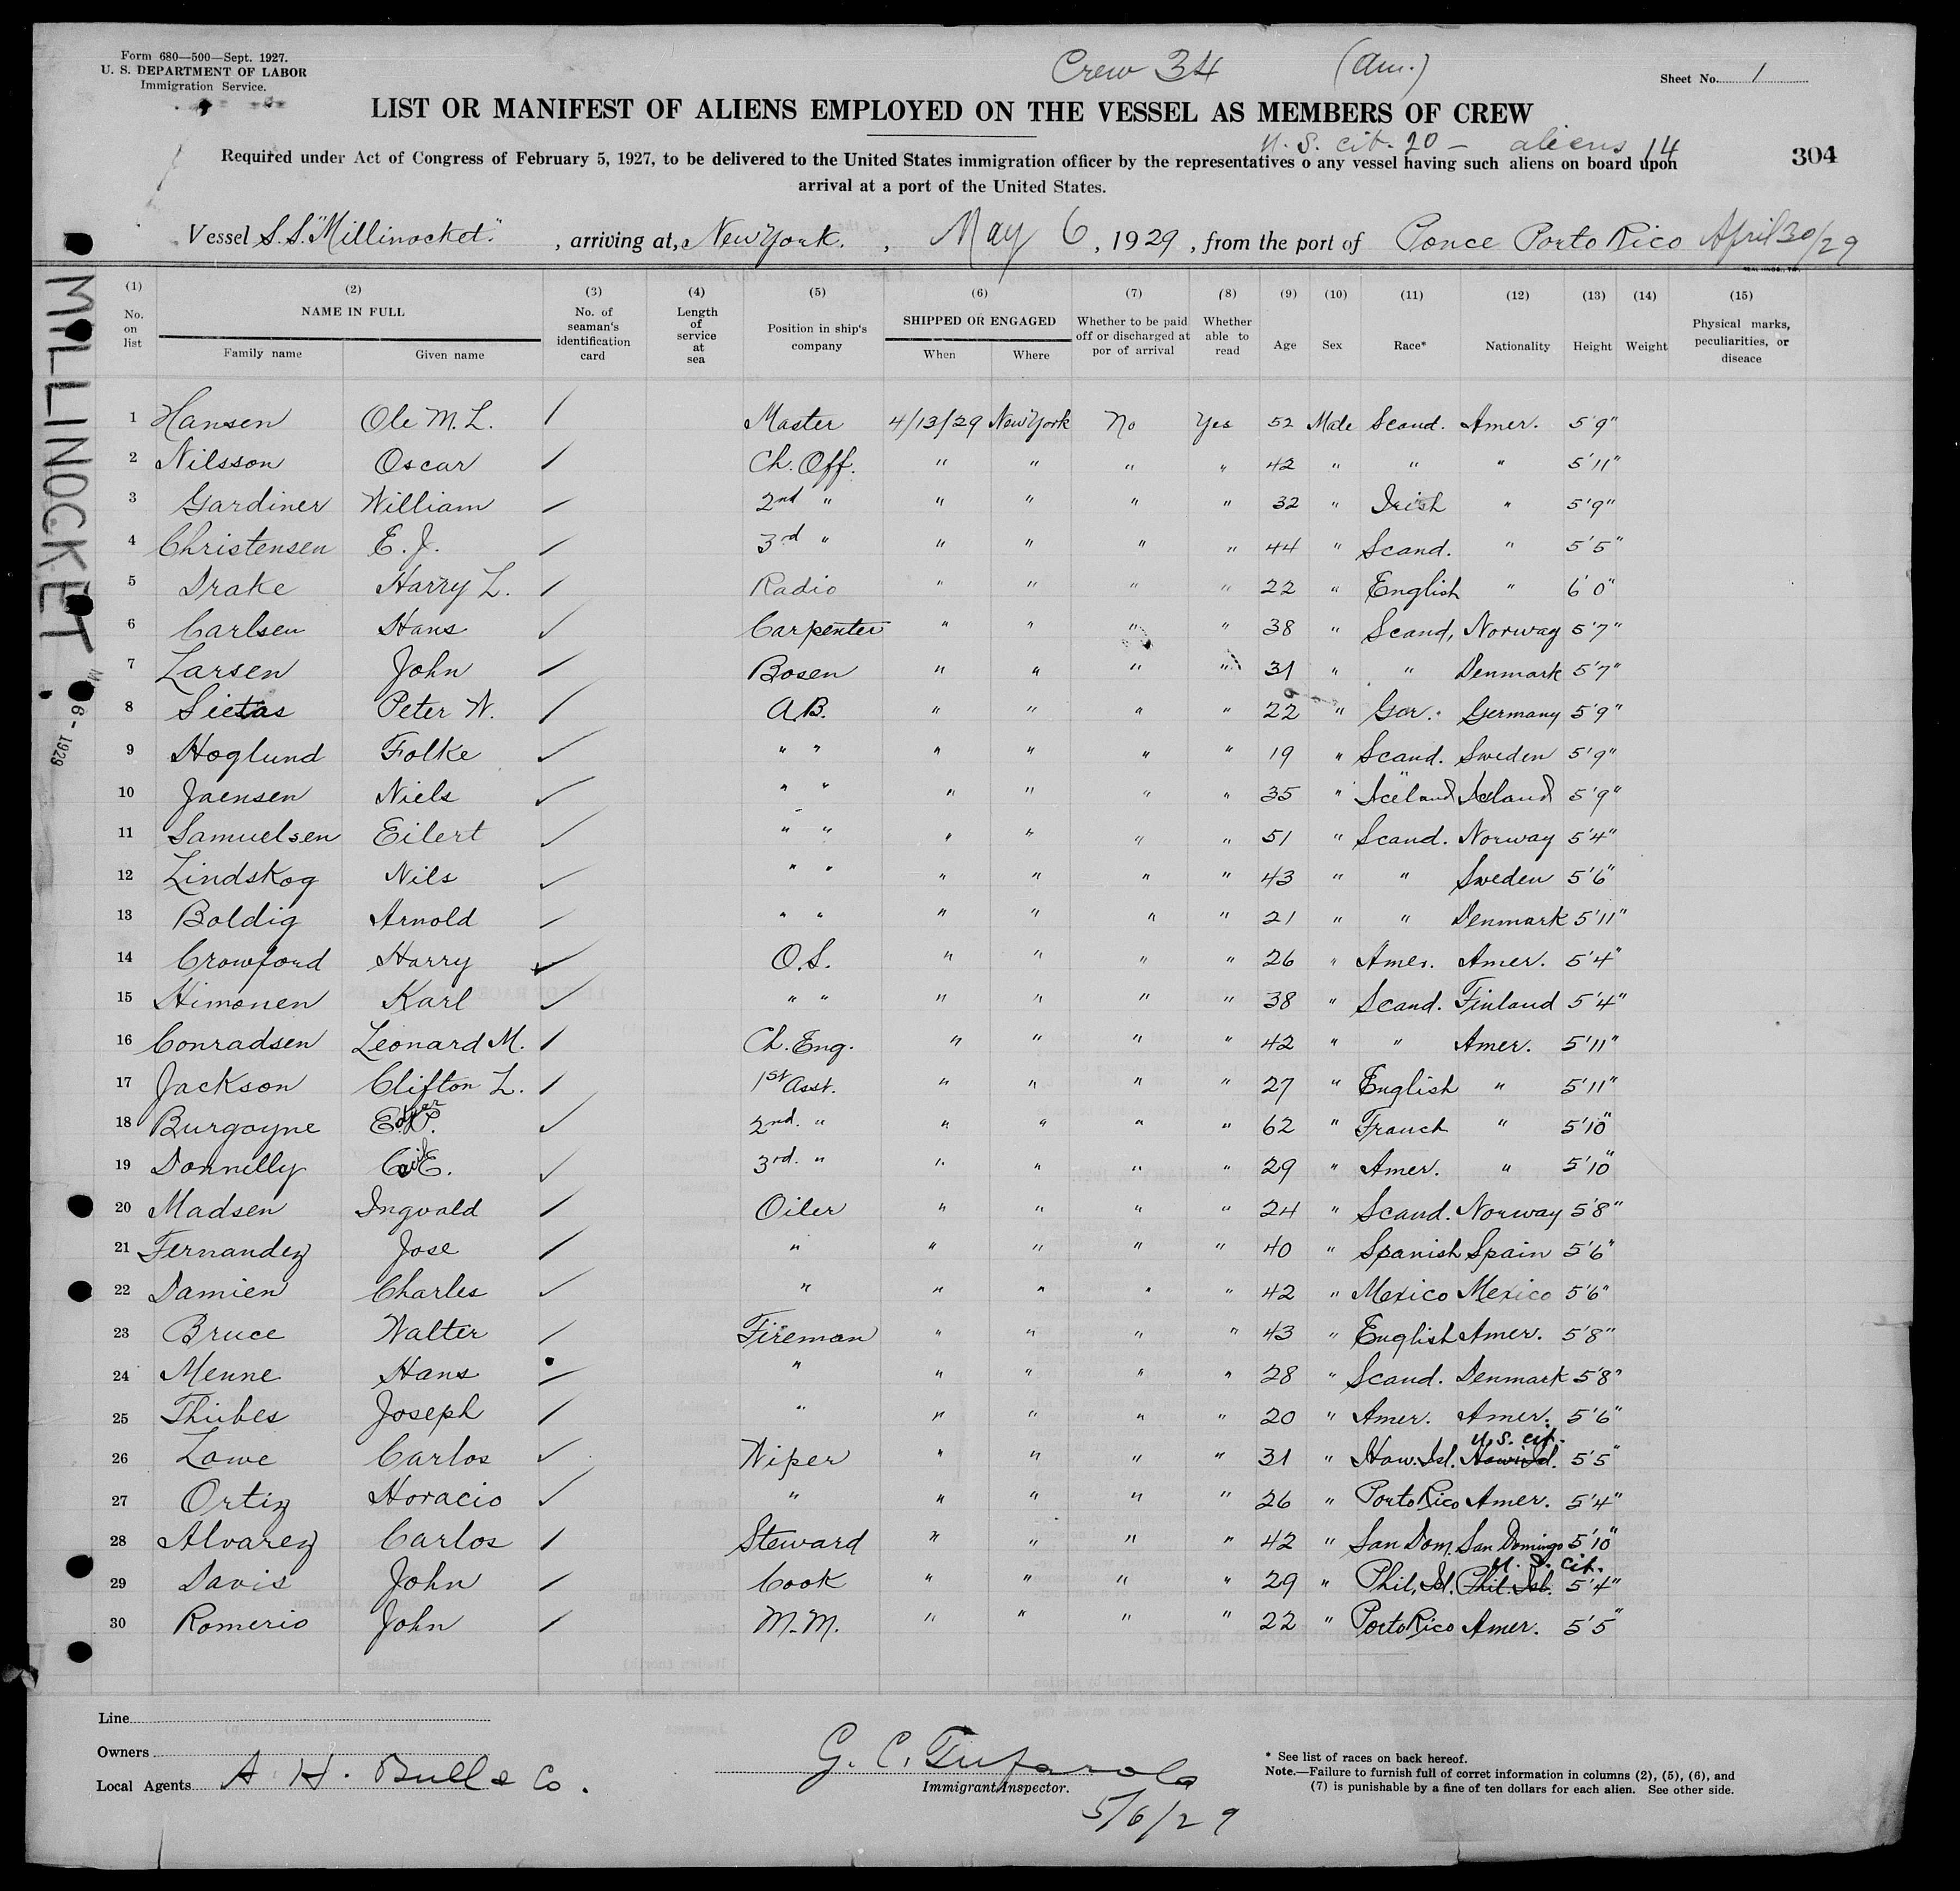 Form 680—500—Sept. 1927.
U. S. DEPARTMENT OF LABOR
Immigration Service.
Crew 34 (Am.)
Sheet No. 1
LIST OR MANIFEST OF ALIENS EMPLOYED ON THE VESSEL AS MEMBERS OF CREW
U. S. cit. 20 — aliens 14
304
Required under Act of Congress of February 5, 1927, to be delivered to the United States immigration officer by the representatives o any vessel having such aliens on board upon
arrival at a port of the United States.
Vessel S.S. "Millinocket." , arriving at, New York. , May 6, 1929, from the port of Ponce Porto Rico April 30/29
MILLINOCKET
6 - 1929
(1) (2) (3) (4) (5) (6) (7) (8) (9) (10) (11) (12) (13) (14) (15)
No. on list NAME IN FULL Family name Given name No. of seaman's identification card Length of service at sea Position in ship's company SHIPPED OR ENGAGED When Where Whether to be paid off or discharged at por of arrival Whether able to read Age Sex Race* Nationality Height Weight Physical marks, peculiarities, or diseace
1 Hansen Ole M. L. Master 4/13/29 New York No Yes 52 Male Scand. Amer. 5'9"
2 Nilsson Oscar Ch. Off. " " " " 42 " " " 5'11"
3 Gardiner William 2nd " " " " " 32 " Irish " 5'9"
4 Christensen E. J. 3rd " " " " " 44 " Scand. " 5'5"
5 Drake Harry L. Radio " " " " 22 " English " 6'0"
6 Carlsen Hans Carpenter " " " " 38 " Scand, Norway 5'7"
7 Larsen John Bosen " " " " 31 " " Denmark 5'7"
8 Sietas Peter W. A.B. " " " " 22 " Ger. Germany 5'9"
9 Hoglund Folke " " " " " " 19 " Scand. Sweden 5'9"
10 Jaensen Niels " " " " " " 35 " Iceland Iceland 5'9"
11 Samuelsen Eilert " " " " " " 51 " Scand. Norway 5'4"
12 Lindskog Nils " " " " " " 43 " " Sweden 5'6"
13 Boldig Arnold " " " " " " 21 " " Denmark 5'11"
14 Crowford Harry O.S. " " " " 26 " Amer. Amer. 5'4"
15 Himonen Karl " " " " " " 38 " Scand. Finland 5'4"
16 Conradsen Leonard M. Ch. Eng. " " " " 42 " " Amer. 5'11"
17 Jackson Clifton L. 1st Asst. " " " " 27 " English " 5'11"
18 Burgoyne 2nd. " " " " " 62 " Franch " 5'10"
19 Donnelly 3rd. " " " " " 29 " Amer. " 5'10"
20 Madsen Ingvald Oiler " " " " 24 " Scand. Norway 5'8"
21 Fernandez Jose " " " " " 40 " Spanish Spain 5'6"
22 Damien Charles " " " " " 42 " Mexico Mexico 5'6"
23 Bruce Walter Fireman " " " " 43 " English Amer. 5'8"
24 Menne Hans " " " " " 28 " Scand. Denmark 5'8"
25 Thibes Joseph " " " " " 20 " Amer. Amer. 5'6"
U.S. cit.
26 Lowe Carlos Wiper " " " " 31 " How. Isl. How. Isl. 5'5"
27 Ortiz Horacio " " " " " 26 " Porto Rico Amer. 5'4"
28 Alvarez Carlos Steward " " " " 42 " San Dom. San Domingo 5'10"
U. S. cit.
29 Davis John Cook " " " " 29 " Phil. Isl. Phil. Isl. 5'4"
30 Romerio John M.M. " " " " 22 " Porto Rico Amer. 5'5"
Line
Owners
Local Agents A. H. Bull & Co.
G. C. Tufarolo
Immigrant Inspector.
5/6/29
* See list of races on back hereof.
Note.—Failure to furnish full of corret information in columns (2), (5), (6), and
(7) is punishable by a fine of ten dollars for each alien. See other side.